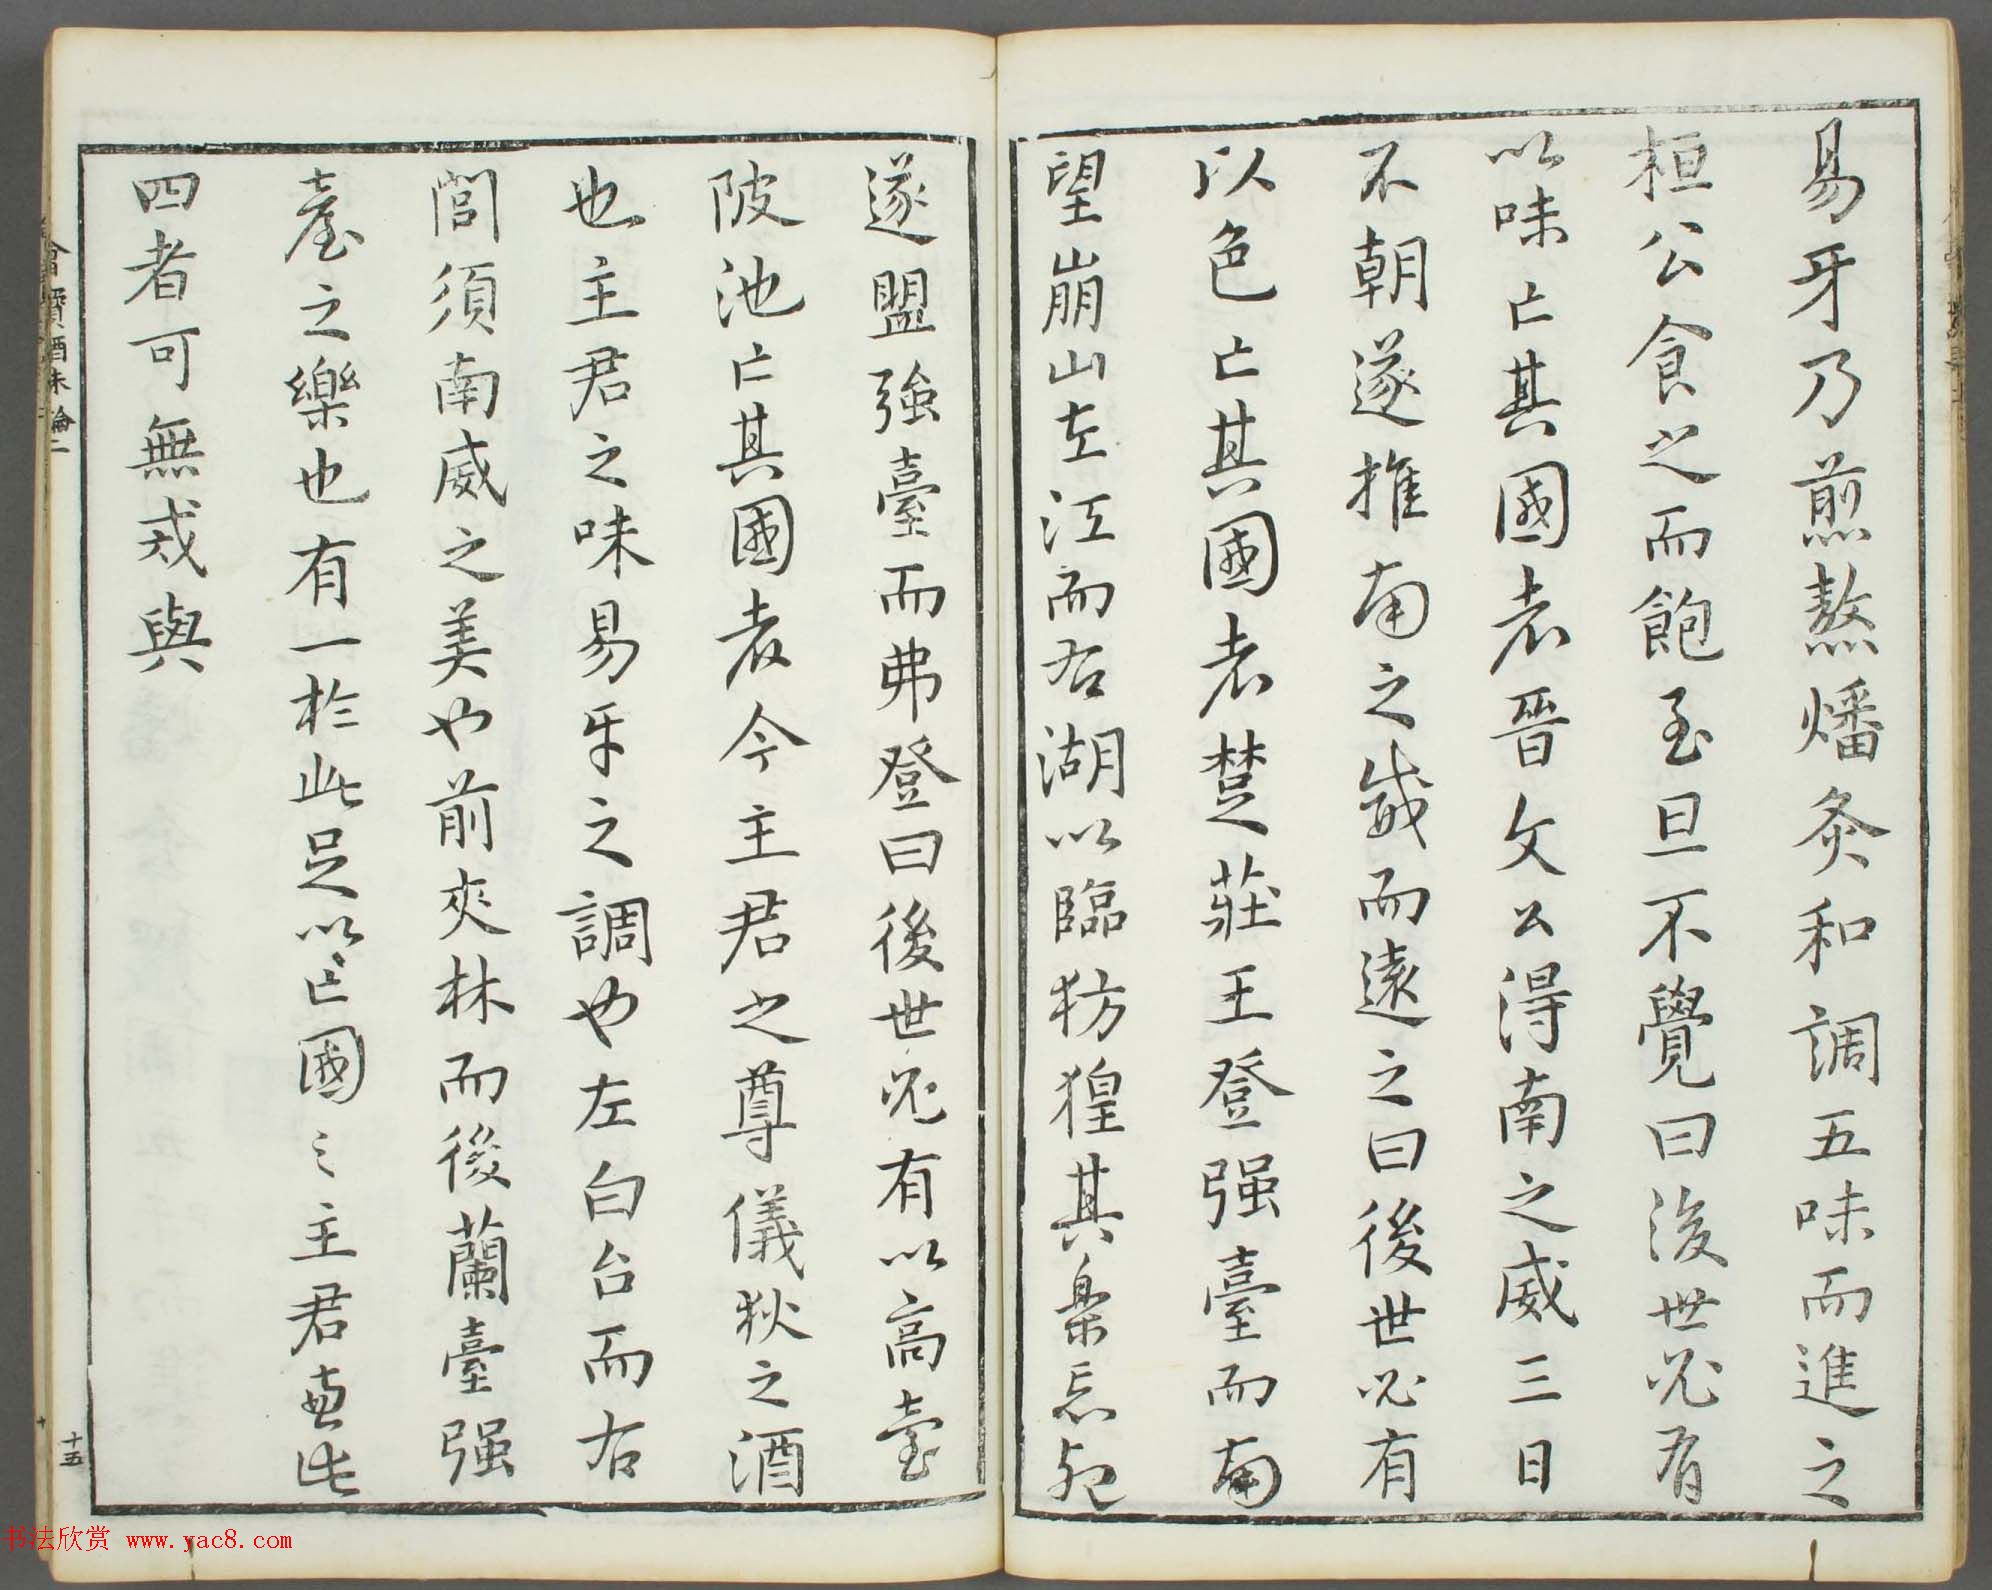 易牙乃煎熬燔炙和調五味而進之
桓公食之而飽至旦不覺曰後世必有
以味亡其國者晉文公得南之威三日
不朝遂推南之威而遠之曰後世必有
以色亡其國者楚莊王登强臺而南
望崩山左江而右湖以臨彷徨其樂忘死
遂盟強臺而弗登曰後世必有以高臺
陂池亡其國者今主君之尊儀狄之酒
也主君之味易牙之調也左白台而右
閭須南威之美也前夾林而後蘭臺强
臺之樂也有一於此足以亡國之主君兼此
四者可無戒與
十五
书法欣赏 www.yac8.com